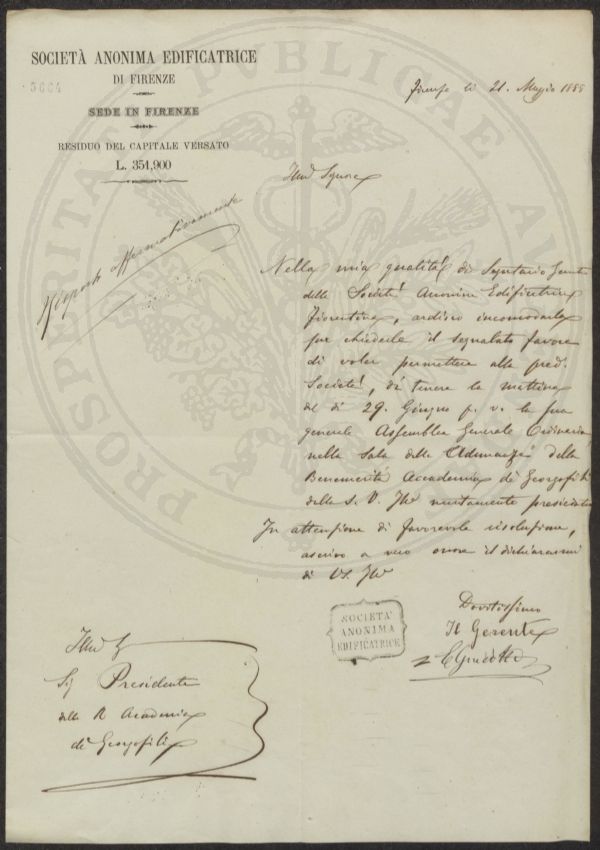 SOCIETÀ ANONIMA EDIFICATRICE
DI FIRENZE
SEDE IN FIRENZE
RESIDUO DEL CAPITALE VERSATO
L. 351,900
Firenze li 21. Maggio 188
Illmo Signore
Risposto affermativamente
Nella mia qualità di Segretario Gerente
della Società Anonima Edificatrice
Fiorentina, ardisco incomodarla
per chiederle il segnalato favore
di voler permettere alla pred.
Società, di tenere la mattina
del dì 29. Giugno p. v. la sua
generale Assemblea Generale Ordinaria
nella Sala delle Adunanze della
Benemerita Accademia de' Georgofili
dalla S. V. Illma meritamente presieduta
In attenzione di favorevole risoluzione,
ascrivo a vero onore il dichiararmi
di VS. Illma
Devotissimo
Il Gerente
SOCIETÀ
ANONIMA
EDIFICATRICE
Illmo
Sig Presidente
della R Accademia
de' Georgofili
PROSPERITATI PUBLICAE AU